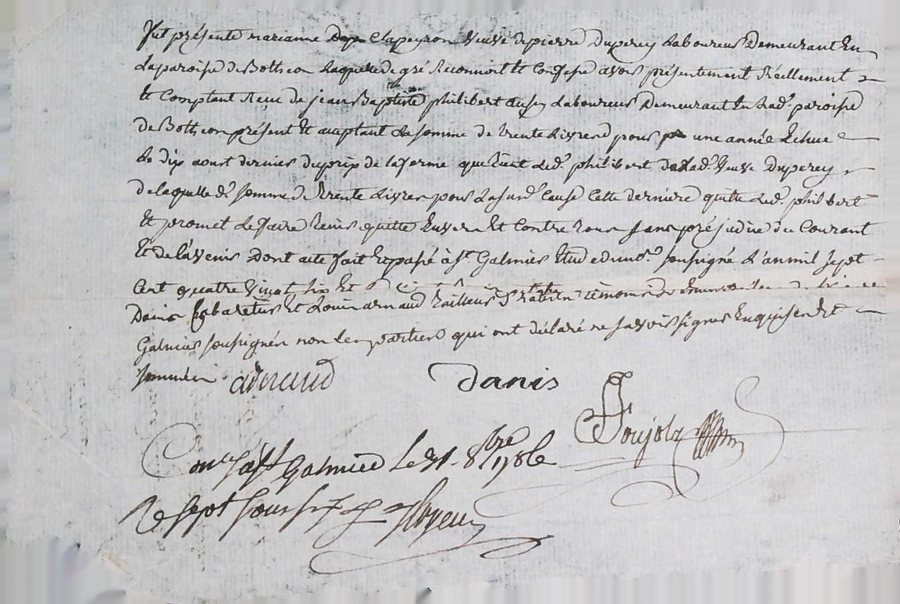 fut présente marianne Clapeyron veuve de pierre Duperey Laboureur Demeurant En
La paroisse de Bothéon Laquelle de gré Reconnoit et Confesse avoir présentement Réellement
et Comptant Receu de jean Baptiste philibert aussy Laboureur Demeurant En Lad. paroisse
de Bothéon présent et aceptant La somme de trente Livres pour une année Echue
Le dix aoust dernier du prix de la ferme que tient Led. philibert de Lad. veuve Duperey
de laquelle d. somme de trente Livres pour La sus d. Cause Cette derniere quitte Led. philibert
et promet Le faire tenir quitte Envers Et Contre tous sans préjudice du Courant
Et de L'avenir dont acte fait et passé à St Galmier Etude du no. soussigné L'an mil sept
Cent quatre vingt six Et
Danis Cabaretier Et Louis arnaud tailleur témoins
Galmier soussignés non Les parties qui ont déclaré ne savoir signer Enquises Et
sommées arnaud Danis
Poujola
Con. à St Galmier Le 31 8bre 1786
Re sept sous six